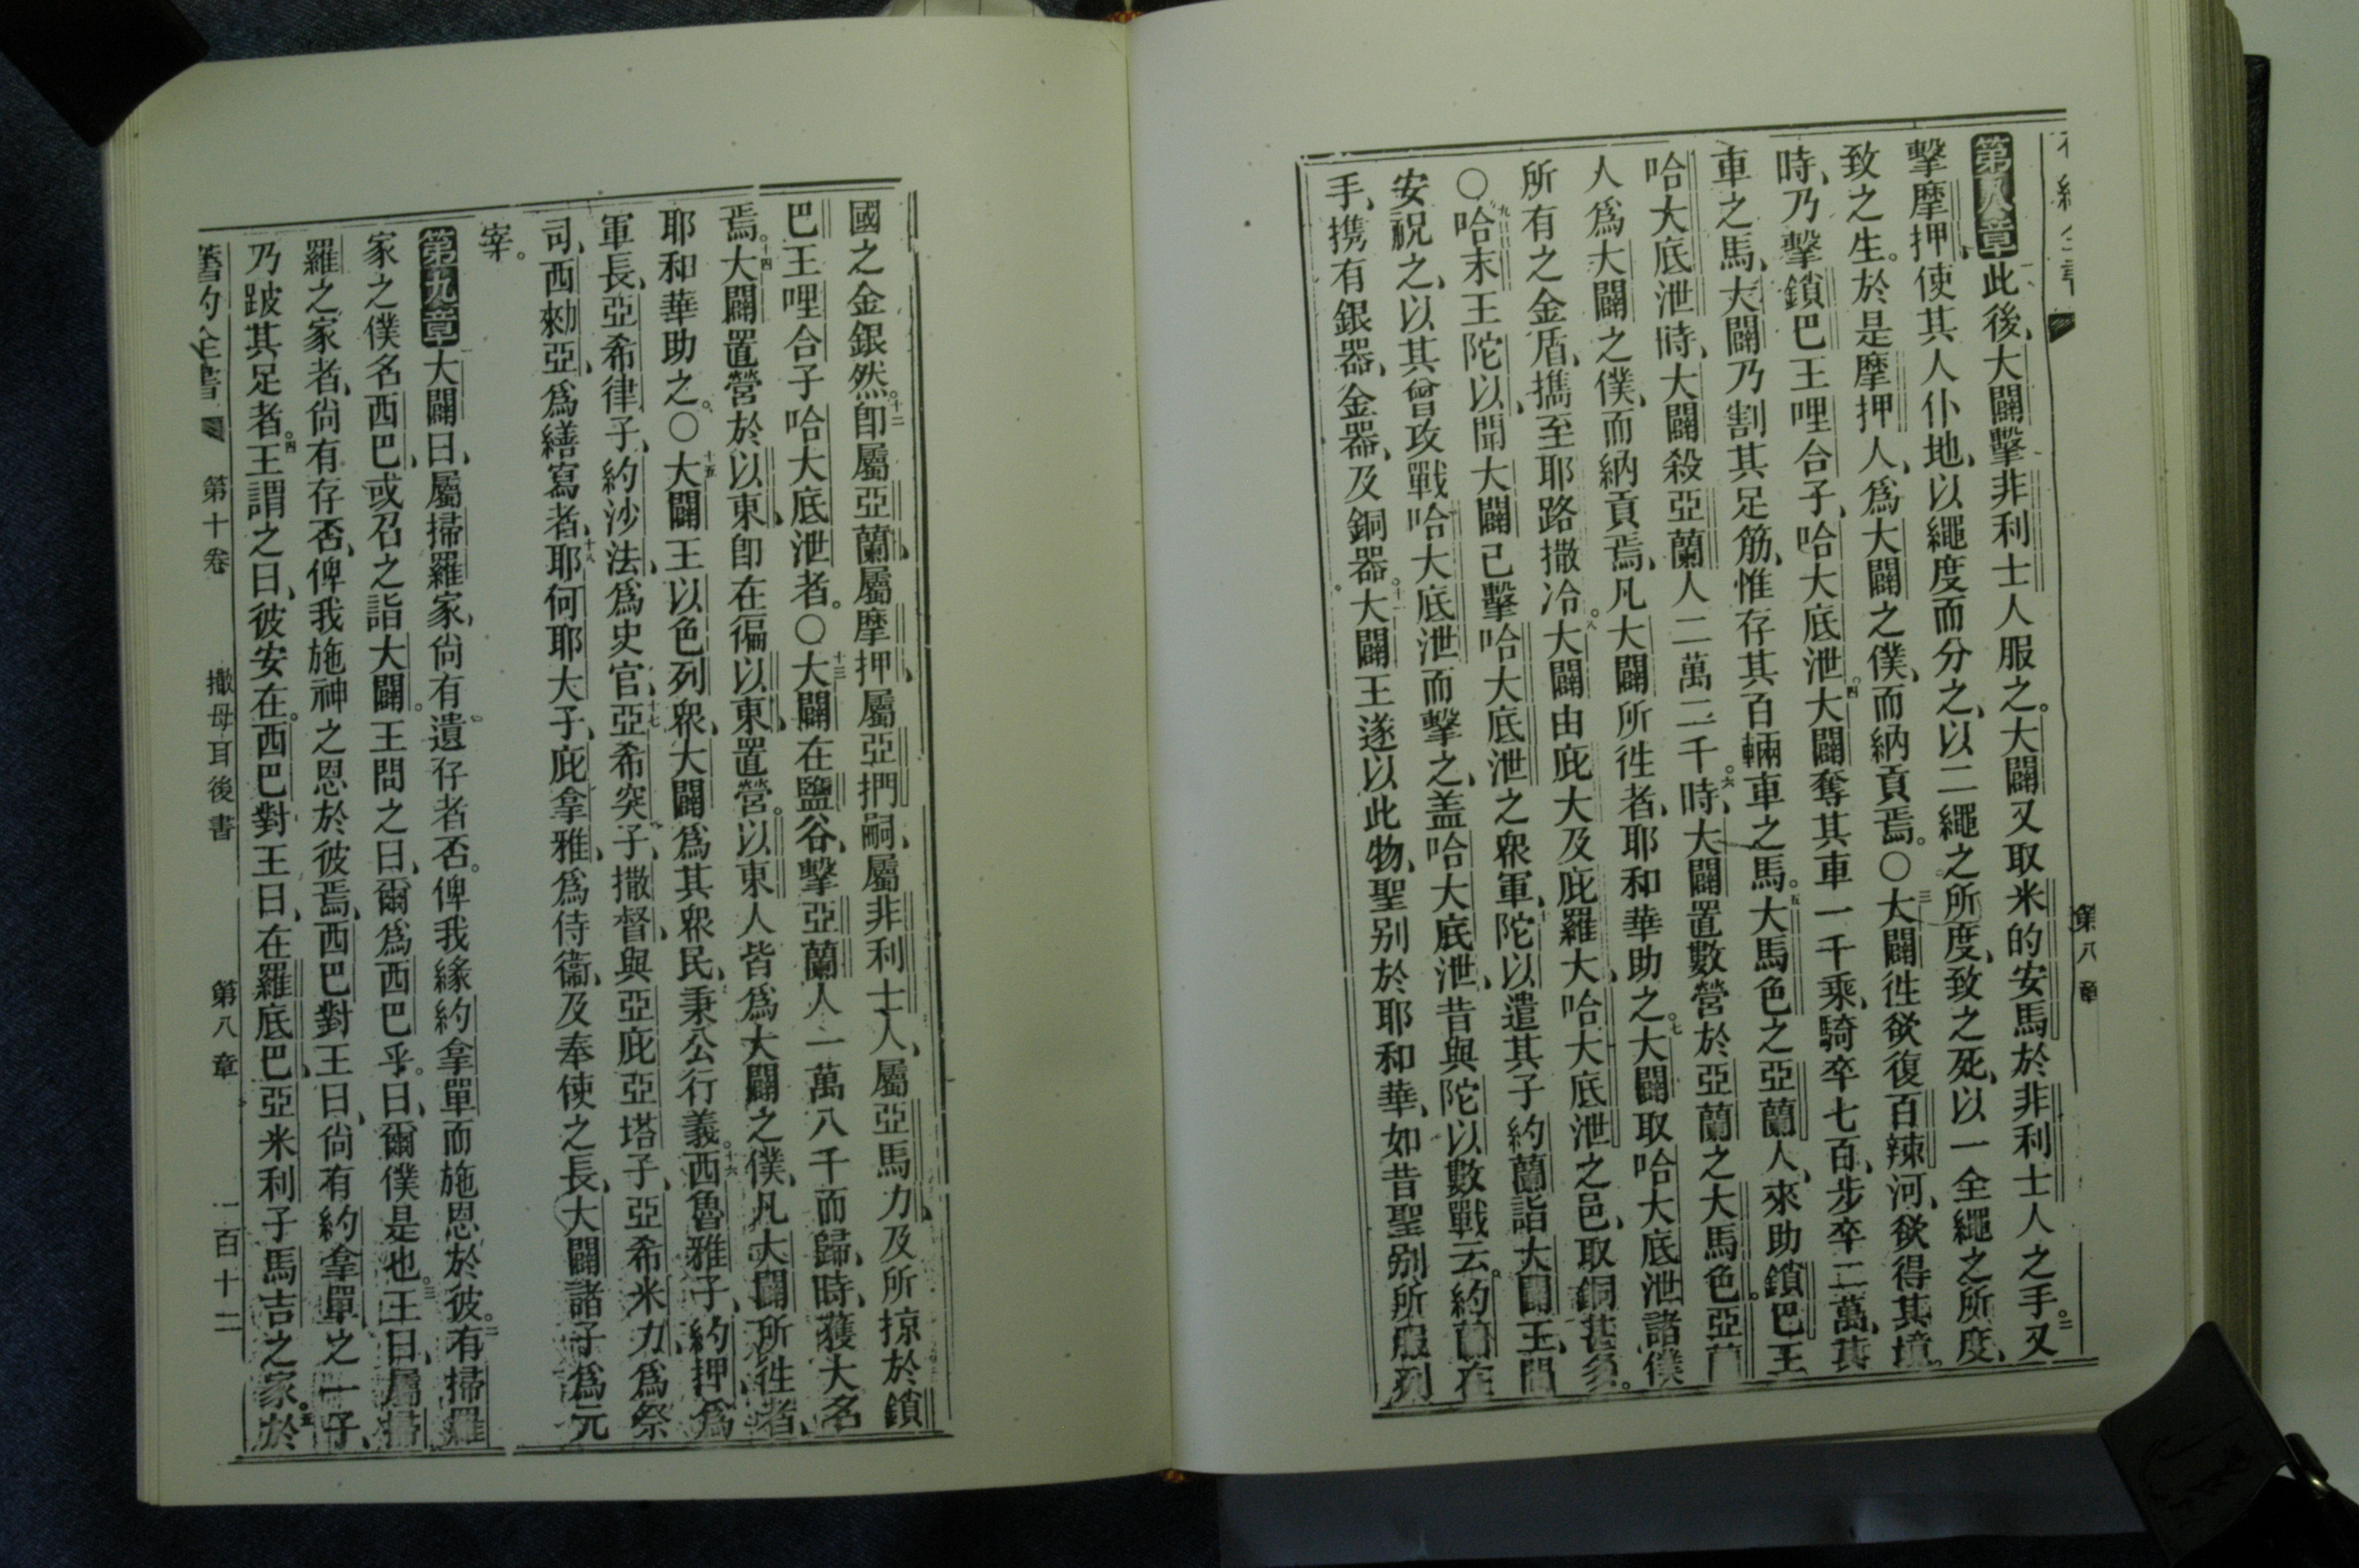 第八章
第八章此後、大闢擊非利士人服之。大闢又取米的安馬於非利士人之手。二又
擊摩押、使其人仆地、以繩度而分之、以二繩之所度、致之死、以一全繩之所度、
致之生。於是摩押人、爲大闢之僕、而納貢焉。○三大闢徃欲復百辣河、欲得其境。
時、乃擊鎖巴王哩合子、哈大底泄。四大闢奪其車一千乘、騎卒七百、步卒二萬、其
車之馬、大闢乃割其足筋、惟存其百輛車之馬。五大馬色之亞蘭人、來助鎖巴王
哈大底泄時、大闢殺亞蘭人二萬二千。六時、大闢置數營於亞蘭之大馬色。亞蘭
人爲大闢之僕、而納貢焉、凡大闢所徃者、耶和華助之。七大闢取哈大底泄諸僕
所有之金盾、攜至耶路撒冷。八大闢由庇大及庇羅大、哈大底泄之邑、取銅甚多。
○九哈末王陀以、聞大闢已擊哈大底泄之衆軍、十陀以遣其子約蘭詣大闢王、問
安祝之、以其曾攻戰哈大底泄而擊之、盖哈大底泄、昔與陀以數戰云。約蘭在
手、携有銀器、金器、及銅器。十一大闢王遂以此物、聖别於耶和華、如昔聖别所服列
國之金銀然。十二卽屬亞蘭、屬摩押、屬亞捫嗣、屬非利士人、屬亞馬力、及所掠於鎖
巴王哩合子哈大底泄者。○十三大闢在鹽谷、擊亞蘭人一萬八千而歸、時、獲大名
焉。十四大闢置營於以東、卽在徧以東、置營。以東人皆爲大闢之僕、凡大闢所徃者、
耶和華助之。○十五大闢王以色列衆、大闢爲其衆民、秉公行義。十六西魯雅子、約押、爲
軍長、亞希律子、約沙法、爲史官、十七亞希突子、撒督、與亞庇亞塔子、亞希米力、爲祭
司、西勑亞、爲繕寫者、十八耶何耶大子、庇拿雅、爲侍衞、及奉使之長、大闢諸子爲元
宰。
第九章大闢曰、屬掃羅家、尙有遺存者否。俾我緣約拿單而施恩於彼。二有掃羅
家之僕名西巴、或召之詣大闢。王問之曰、爾爲西巴乎。曰、爾僕是也。三王曰、屬掃
羅之家者、尙有存否、俾我施神之恩於彼焉、西巴對王曰、尙有約拿單之一子、
乃跛其足者。四王謂之曰、彼安在。西巴對王曰、在羅底巴、亞米利子馬吉之家。五於
舊約全書 第十卷 撒母耳後書 第八章 一百十二